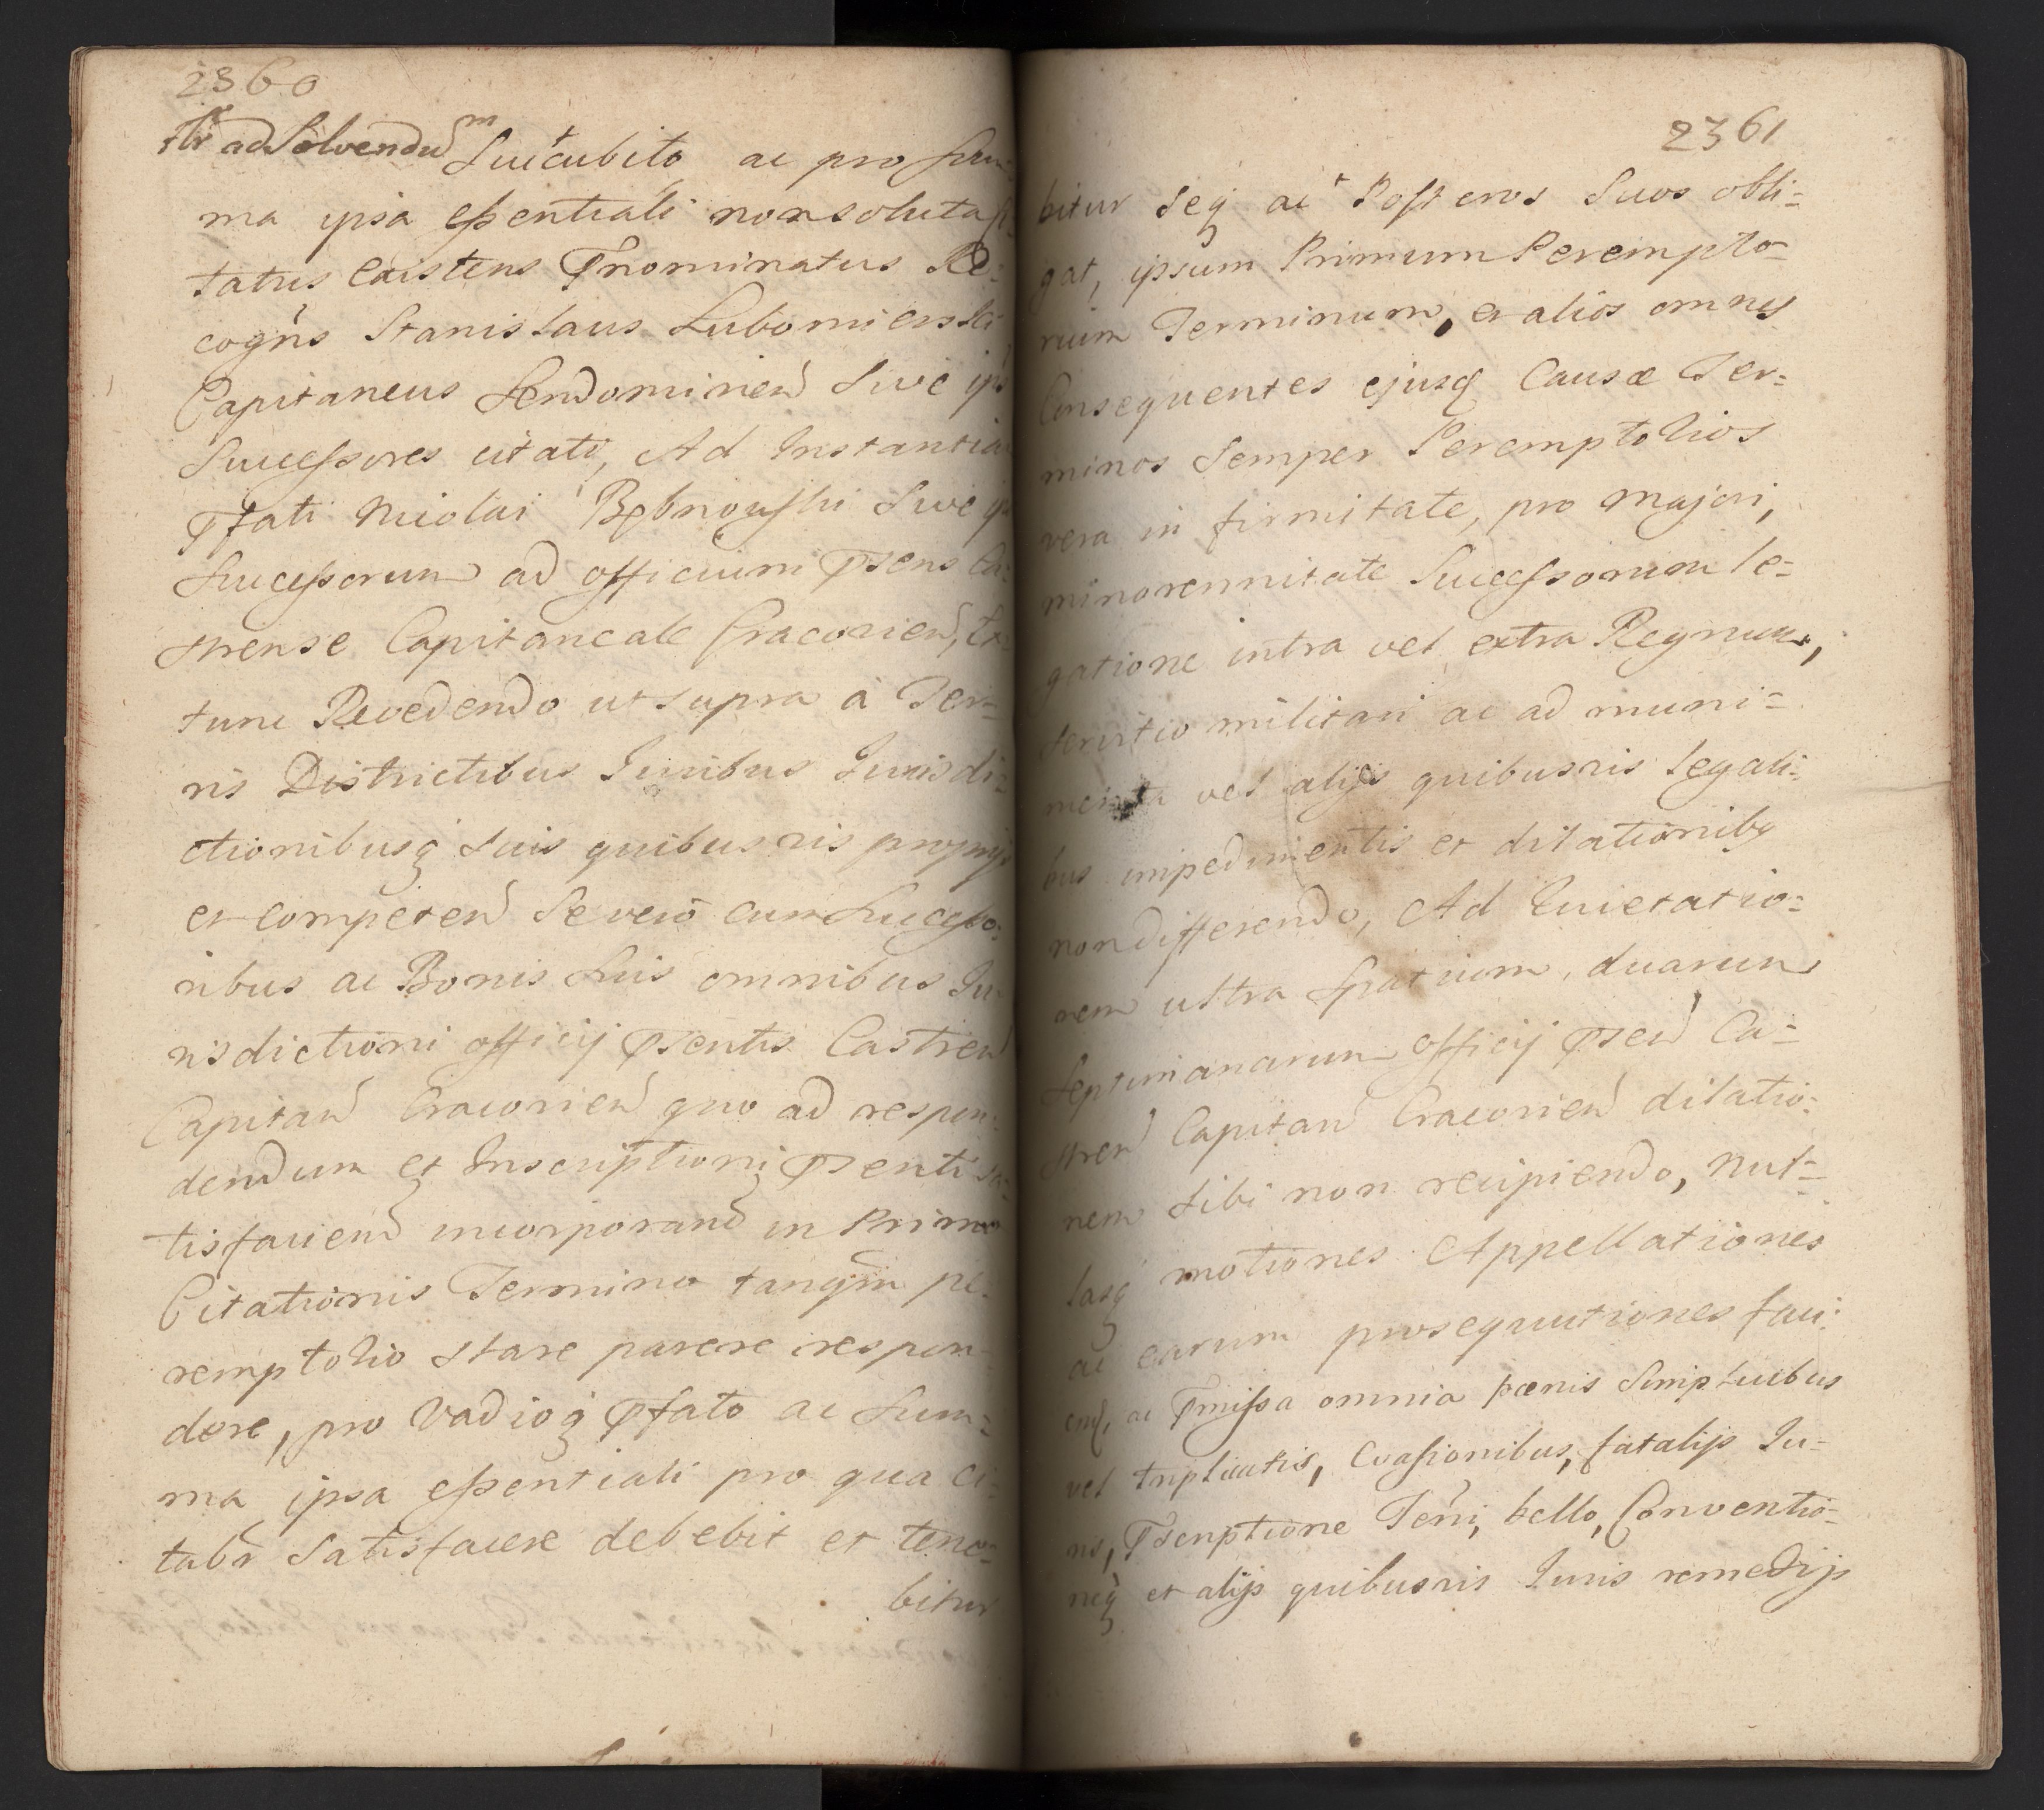 2360
ad Solvendum Succubito ac pro Sum-
ma ipsa eßentiali non soluta Ci-
tatus existens Pnominatus Re-
cogn̄s Stanislaus Lubomierski
Capitaneus Sendomirien Sive ips
Succeßores citati, Ad Instantiam
Pfati Nicolai Sive ips
Succeßorum ad officium Psens Ca-
strense Capitaneale Cracovien, Ex
tunc Recedendo ut supra a Ter-
ris Districtibus Juribus Jurisdi-
ctionibusq Suis quibusvis proprijs
et competen Se vero cum Succeßo-
ribus ac Bonis Suis omnibus Ju-
risdictioni officij Psentis Castren
Capitan Cracovien quo ad respon-
dendum et Inscriptioni Psenti sa-
tisfacien incorporand in Primo
Citationis Termino tanqm pe-
remptorio stare parere respon-
dere, pro Vadioq Pfato ac Sum-
ma ipsa eßentiali pro qua Ci-
tabr Satisfacere debebit et tene-
bitur
2361
bitur seq ac Posteros Suos obli-
gat, ipsum Primum Perempto-
rium Terminum, et alios omnes
Consequentes ejusq Causæ Ter-
minos Semper Peremptorios
vera in firmitate, pro majori,
minorennitate Succeßorum le-
gatione intra vel extra Regnum,
servitio militari ac ad muni-
menta vel alijs quibusvis legali-
bus impedimentis et dilationibq
non differendo, Ad Quietatio-
nem ultra Spatium duarum
Septimanarum officij Psen Ca-
stren Capitan Cracovien dilatio-
nem sibi non recipiendo, Nul-
lasq motiones Appellationes
ac earum prosequutiones faci-
end, ac Pmißa omnia pœnis Simplicibus
vel triplicatis, Evasionibus, fatalijs Ju-
ris, Pscriptione Terri, bello, Conventio-
niq et alijs quibusvis Juris remedijs